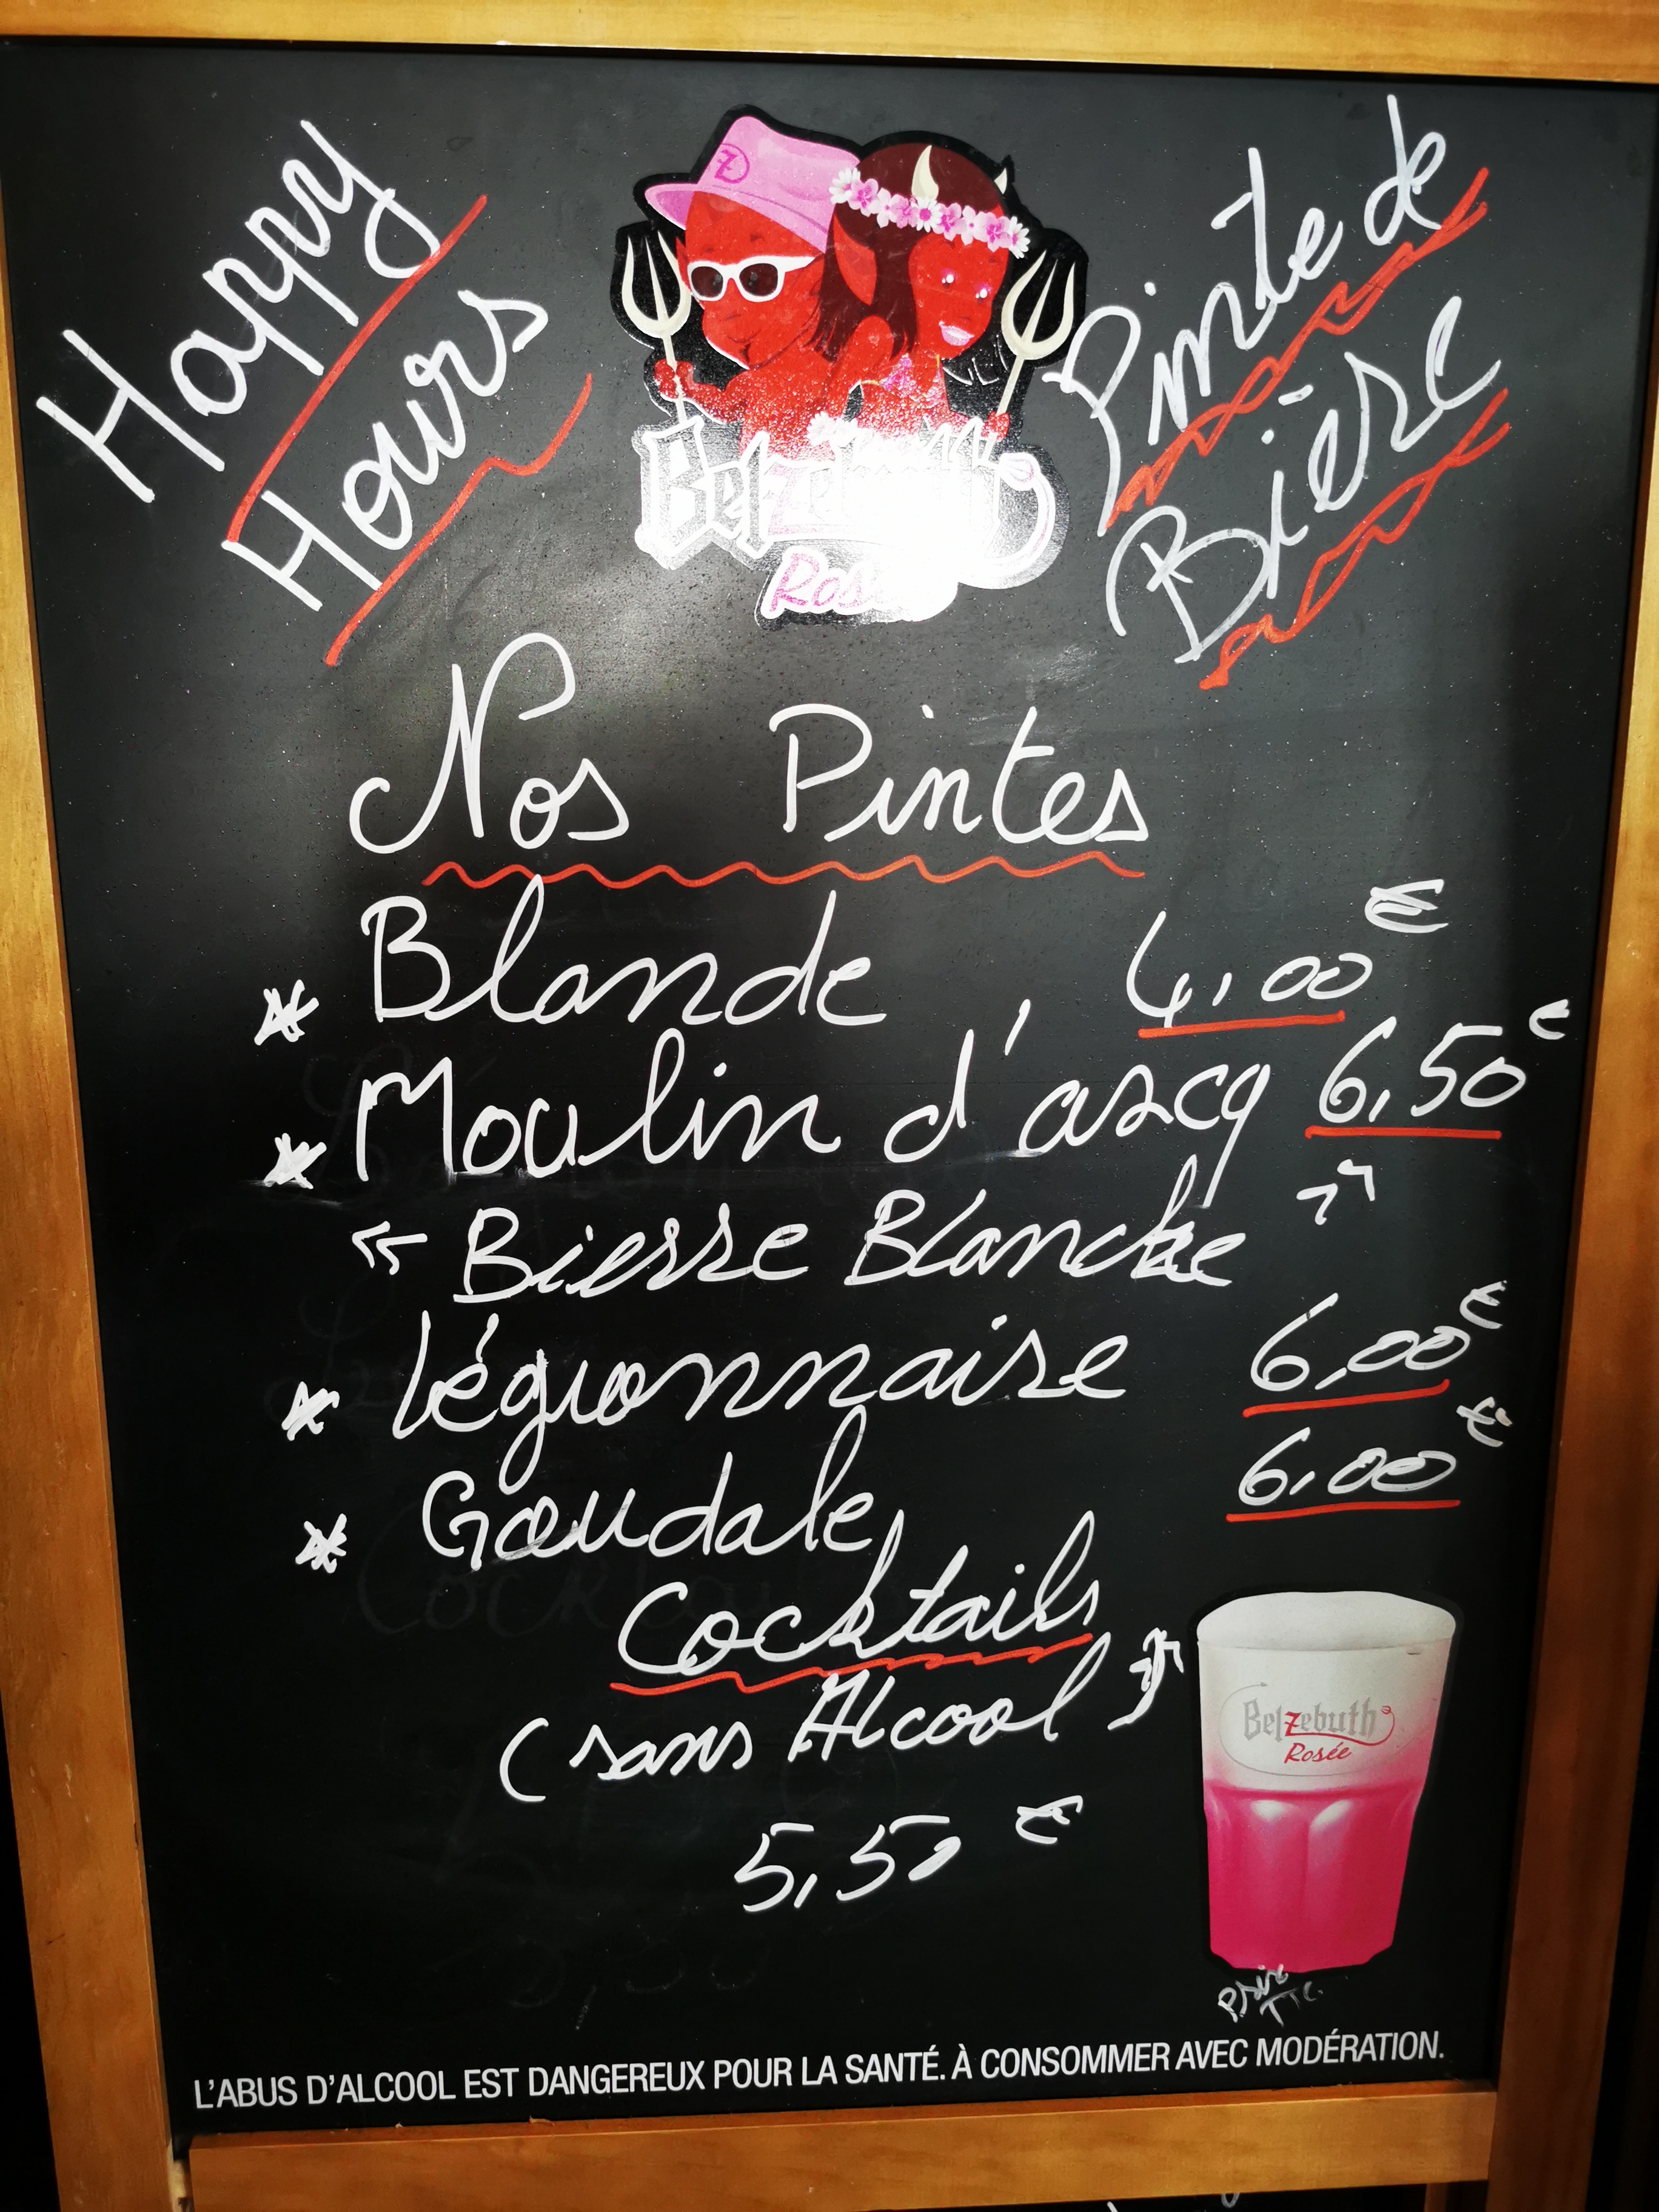 Happy
Hours
Belzebuth
Rosée
Pinte de
Bière
Nos Pintes
* Blande 4,00€
* Moulin d'ascq 6,50€
"Bierre Blanche"
* Légionnaise 6,00€
* Goudale 6,00€
Cocktails
(sans Alcool)
5,50€
Belzebuth
Rosée
Prix
TTC.
L'ABUS D'ALCOOL EST DANGEREUX POUR LA SANTÉ. À CONSOMMER AVEC MODÉRATION.